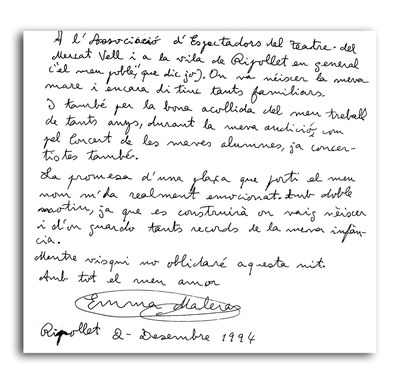 A l'Associació d'Espectadors del Teatre del
Mercat Vell i a la vila de Ripollet en general
("el meu poble", que dic jo). On va néixer la meva
mare i encara di tinc tants familiars.
I també per la bona acollida del meu treball
de tants anys, durant la meva audició, com
pel Concert de les meves alumnes, ja concer-
tistes també.
La promesa d'una plaça que porti el meu
nom m'ha realment emocionat. Amb doble
motiu, ja que es construirà on vaig néixer
i d'on guardo tants records de la meva infàn-
cia.
Mentre visqui no oblidaré aquesta nit.
Amb tot el meu amor
Emma Maleras
Ripollet 2 - Desembre 1994